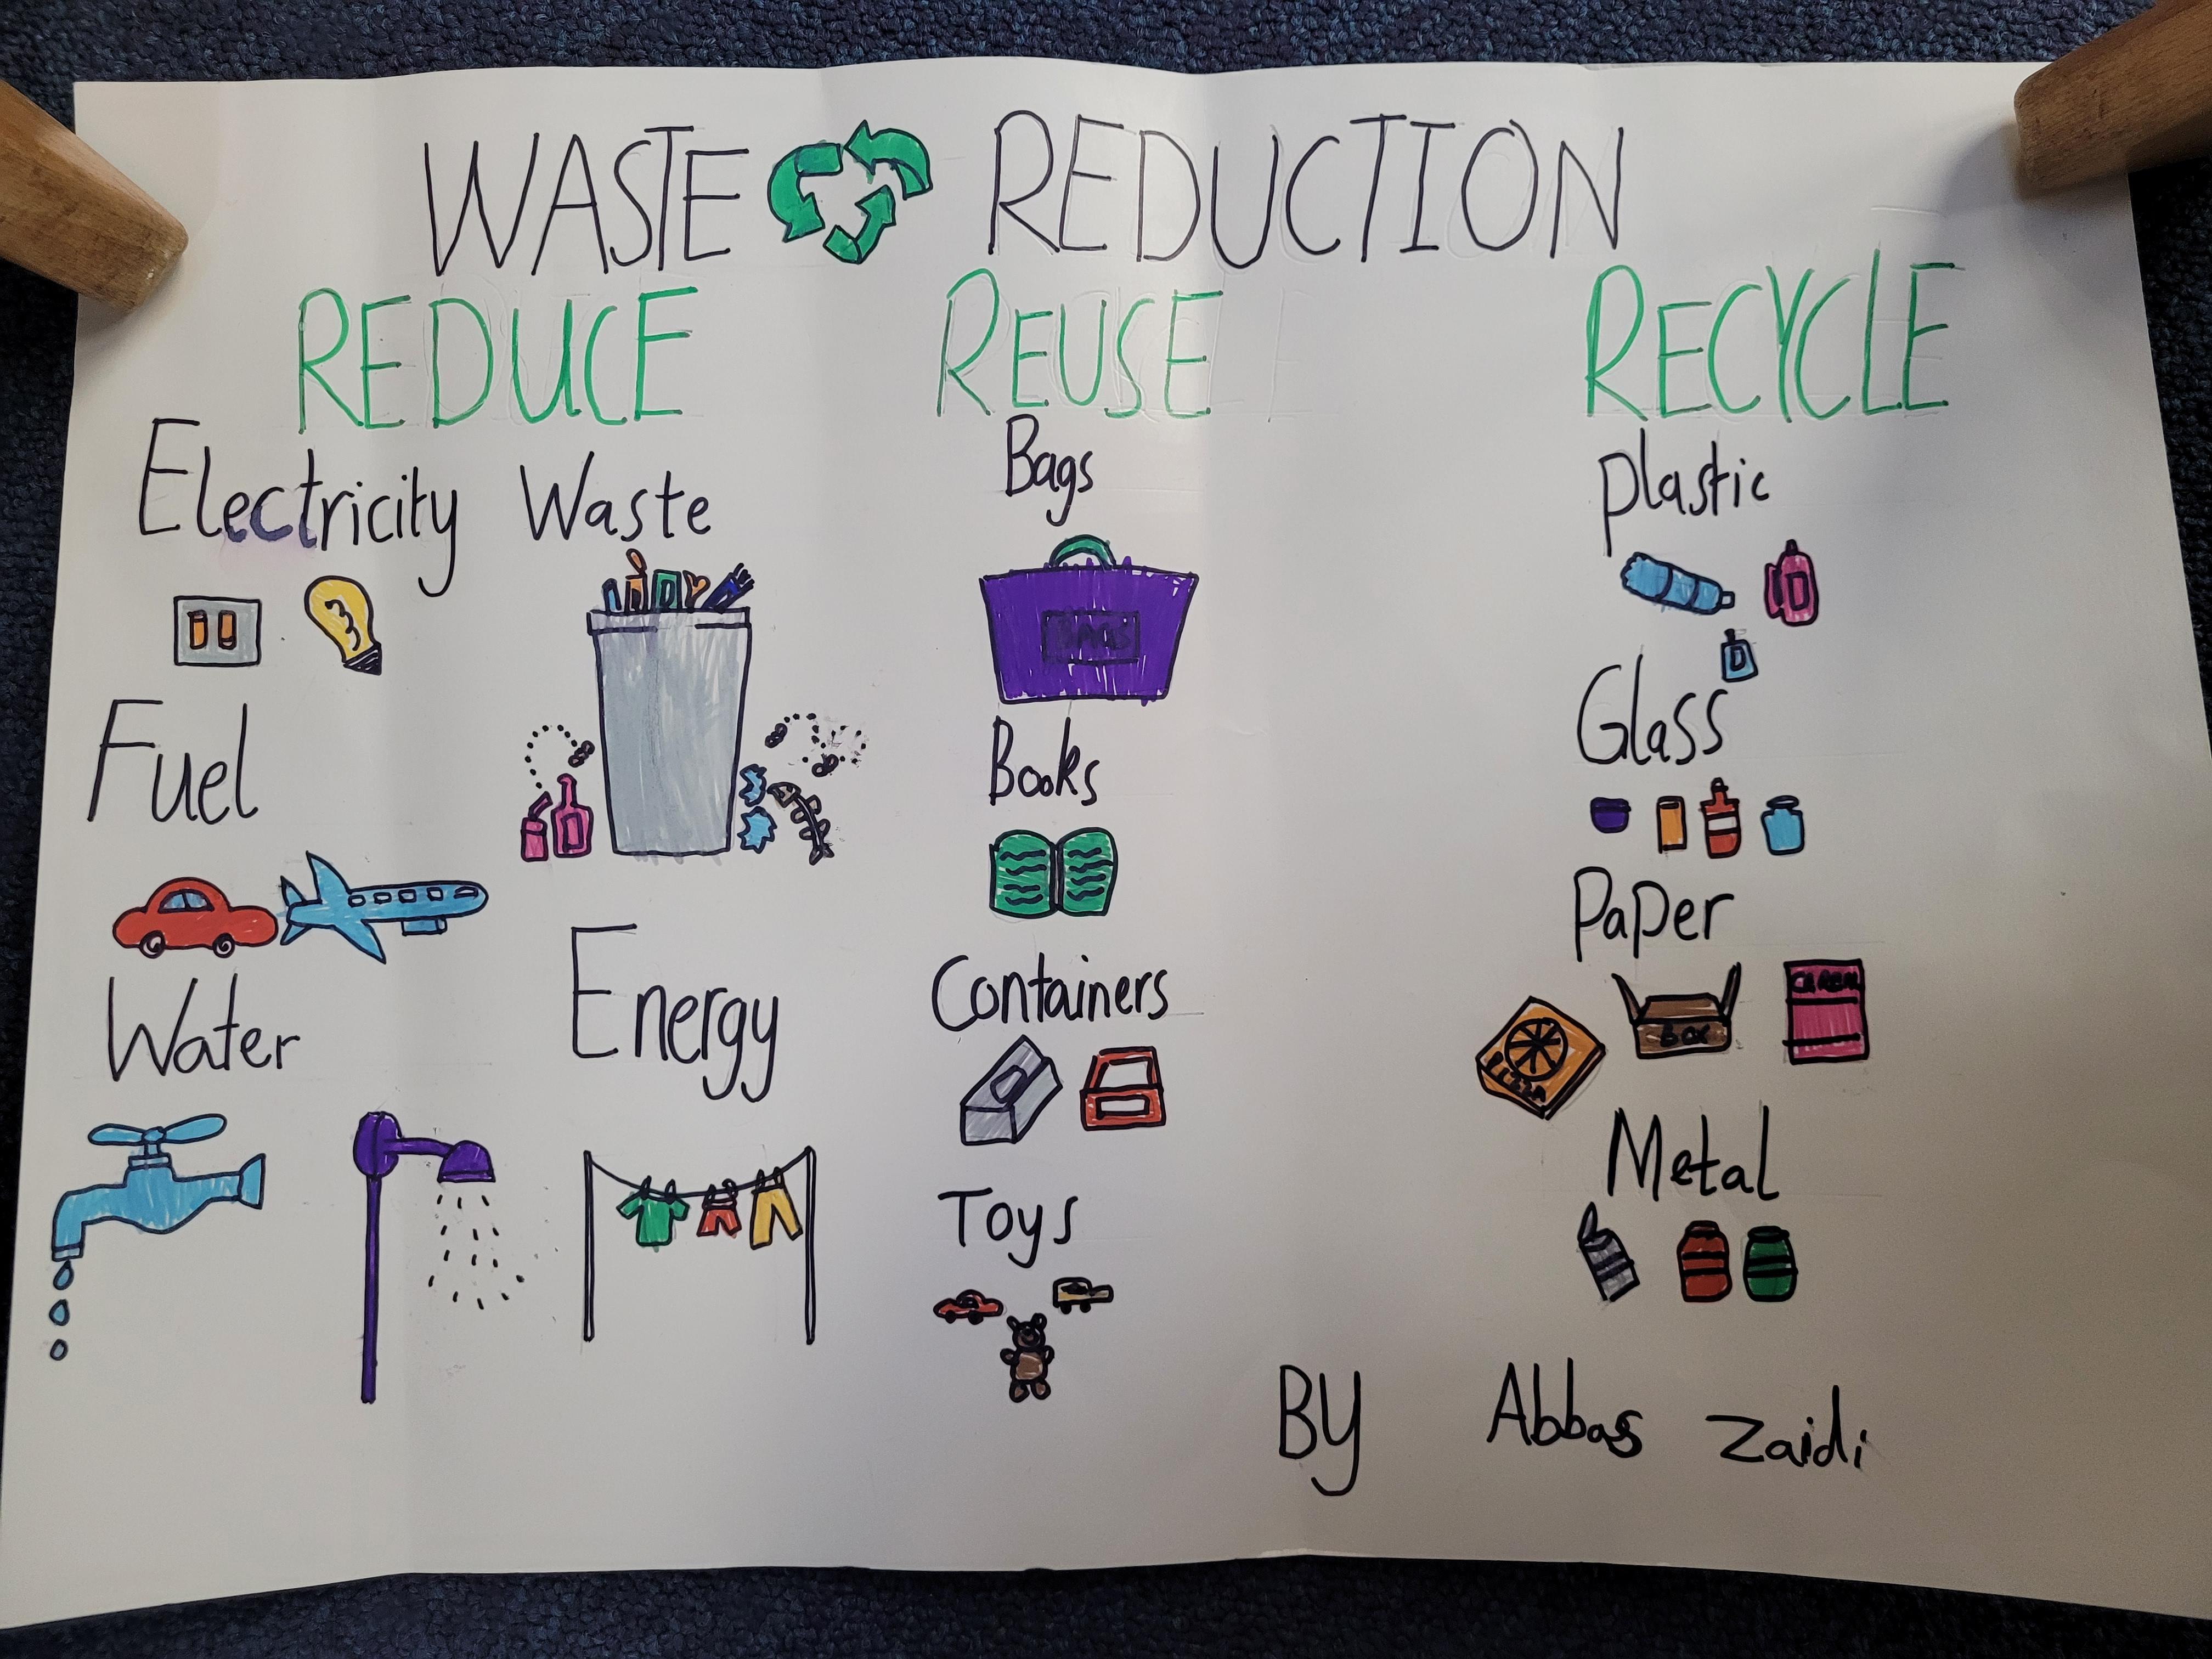 WASTE REDUCTION
REDUCE REUSE RECYCLE
Electricity Waste
Fuel
Water
Energy
Bags
BAGS
Books
Containers
Toys
plastic
Glass
Paper
PIZZA
BOX
Metal
BY Abbas Zaidi